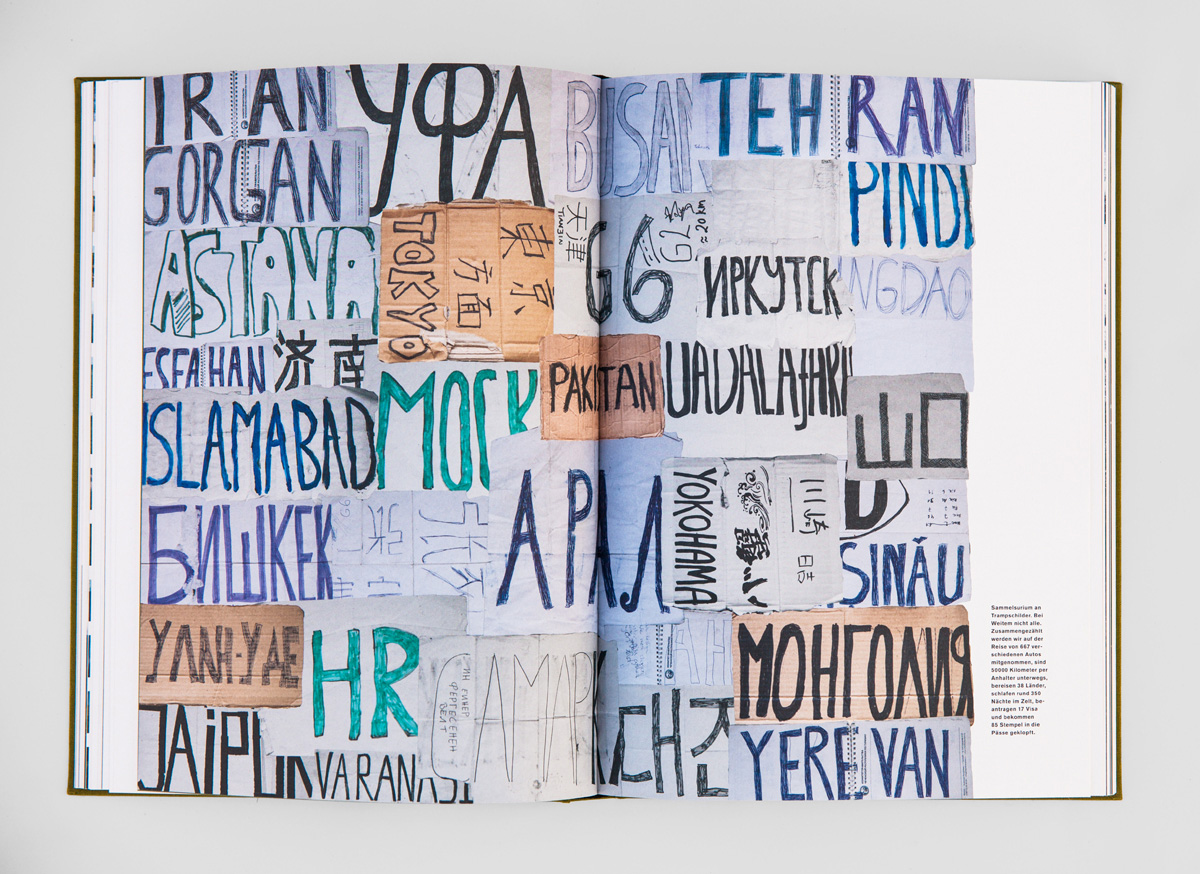 IRAN
УФА
BUSAN
TEHRAN
GORGAN
PINDI
TOKYO
東京
方面
天津
TIANJIN
G6
G2
≈ 20 km
ASTANA
ИРКУТСК
NGDAO
ESFAHAN
济南
PAKISTAN
UADALAJARA
ISLAMABAD
МОСК
АРАЛ
YOKOHAMA
川崎
БИШКЕК
G6
ȘINĂU
УЛАН-УДЕ
HR
МОНГОЛИЯ
ИН ЕИНЕР
ФЕРГЕСЕНЕН
ВЕЛТ
JAiPUR
VARANASI
YEREVAN
Sammelsurium an
Trampschilder. Bei
Weitem nicht alle.
Zusammengezählt
werden wir auf der
Reise von 667 ver-
schiedenen Autos
mitgenommen, sind
50000 Kilometer per
Anhalter unterwegs,
bereisen 38 Länder,
schlafen rund 350
Nächte im Zelt, be-
antragen 17 Visa
und bekommen
85 Stempel in die
Pässe geklopft.